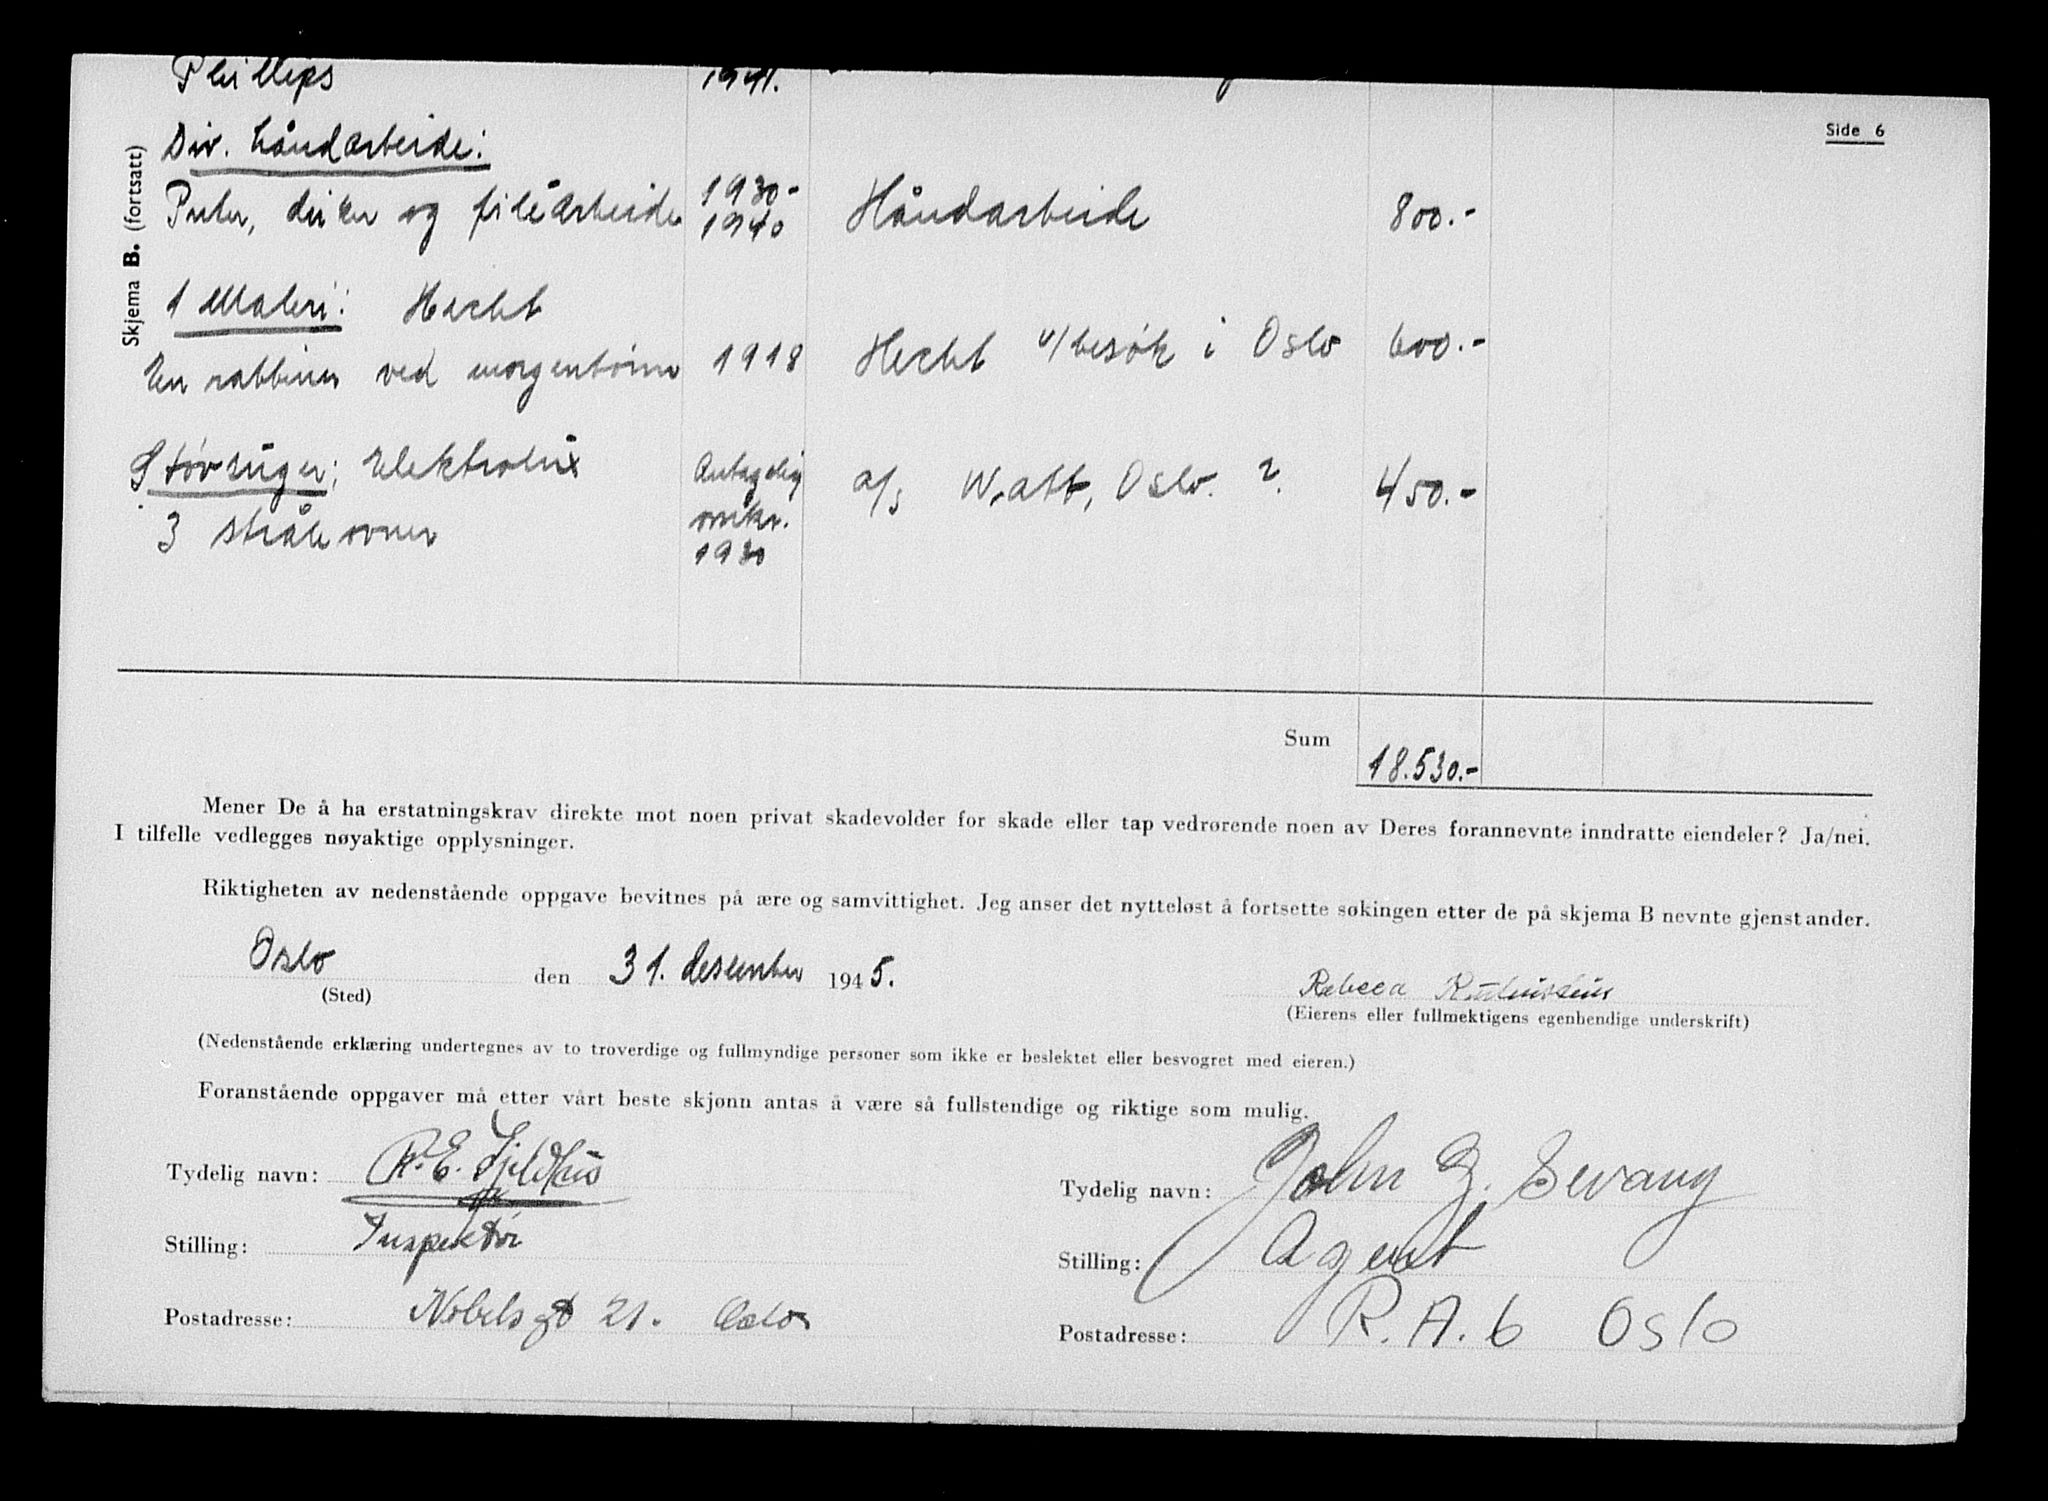 Phillips 1941.
Side 6
Skjema B. (fortsatt)
Div. håndarbeide:
Puter, duker og filéarbeide 1930-1940 Håndarbeide 800.-
1 Maleri: Hecht
En rabbiner ved morgenbønn 1918 Hecht v/besøk i Oslo 600.-
Støvsuger; Elektrolux Antagelig omkr. 1930 a/s Watt, Oslo. ? 450.-
3 stråleovner
Sum 18.530.-
Mener De å ha erstatningskrav direkte mot noen privat skadevolder for skade eller tap vedrørende noen av Deres forannevnte inndratte eiendeler? Ja/nei.
I tilfelle vedlegges nøyaktige opplysninger.
Riktigheten av nedenstående oppgave bevitnes på ære og samvittighet. Jeg anser det nytteløst å fortsette søkingen etter de på skjema B nevnte gjenstander.
Oslo den 31. desember 1945. Rebecca Rubinstein
(Sted) (Eierens eller fullmektigens egenhendige underskrift)
(Nedenstående erklæring undertegnes av to troverdige og fullmyndige personer som ikke er beslektet eller besvogret med eieren.)
Foranstående oppgaver må etter vårt beste skjønn antas å være så fullstendige og riktige som mulig.
Tydelig navn: R. E. Fjeldhus Tydelig navn: John G. Sevang
Stilling: Inspektør Stilling: Agent
Postadresse: Nobels gt 21. Oslo Postadresse: R. A. 6 Oslo